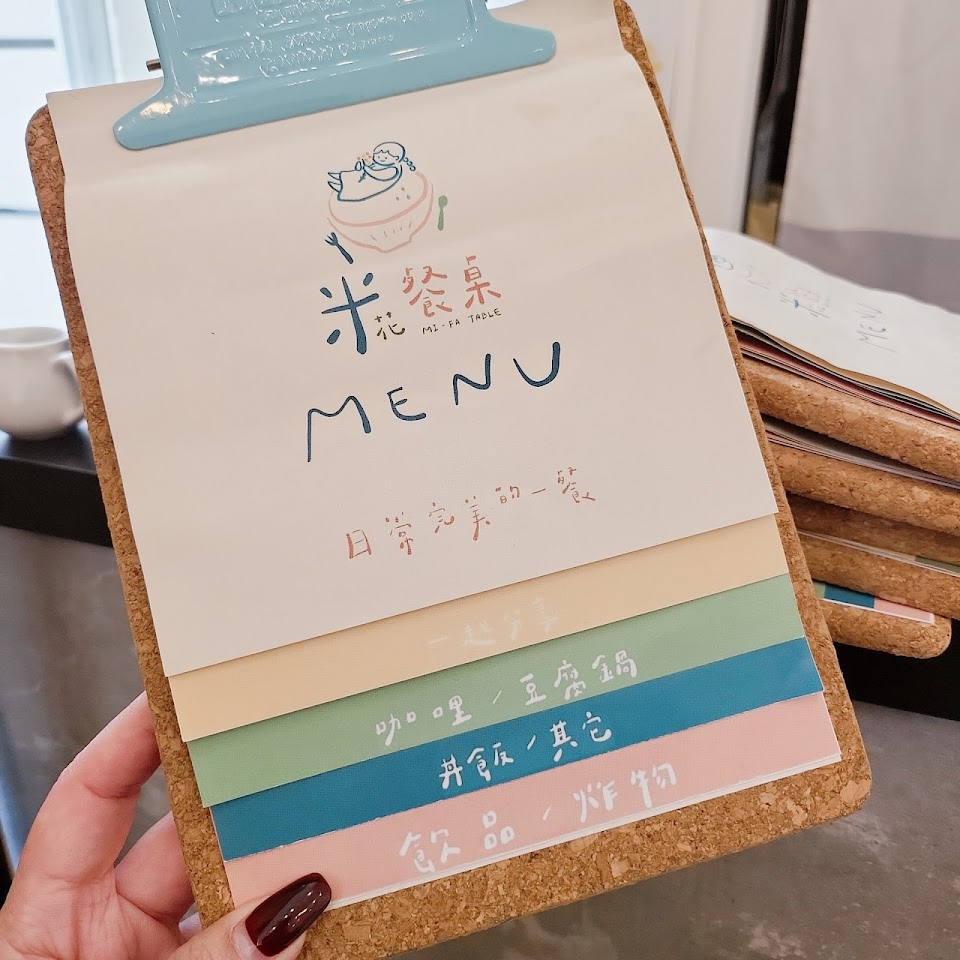 米花餐桌
MI-FA TABLE
MENU
日常完美的一餐
一起分享
咖哩/豆腐鍋
丼飯/其它
飲品/炸物